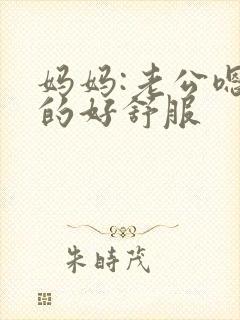 妈妈:老公嗯
的好舒服
朱時茂